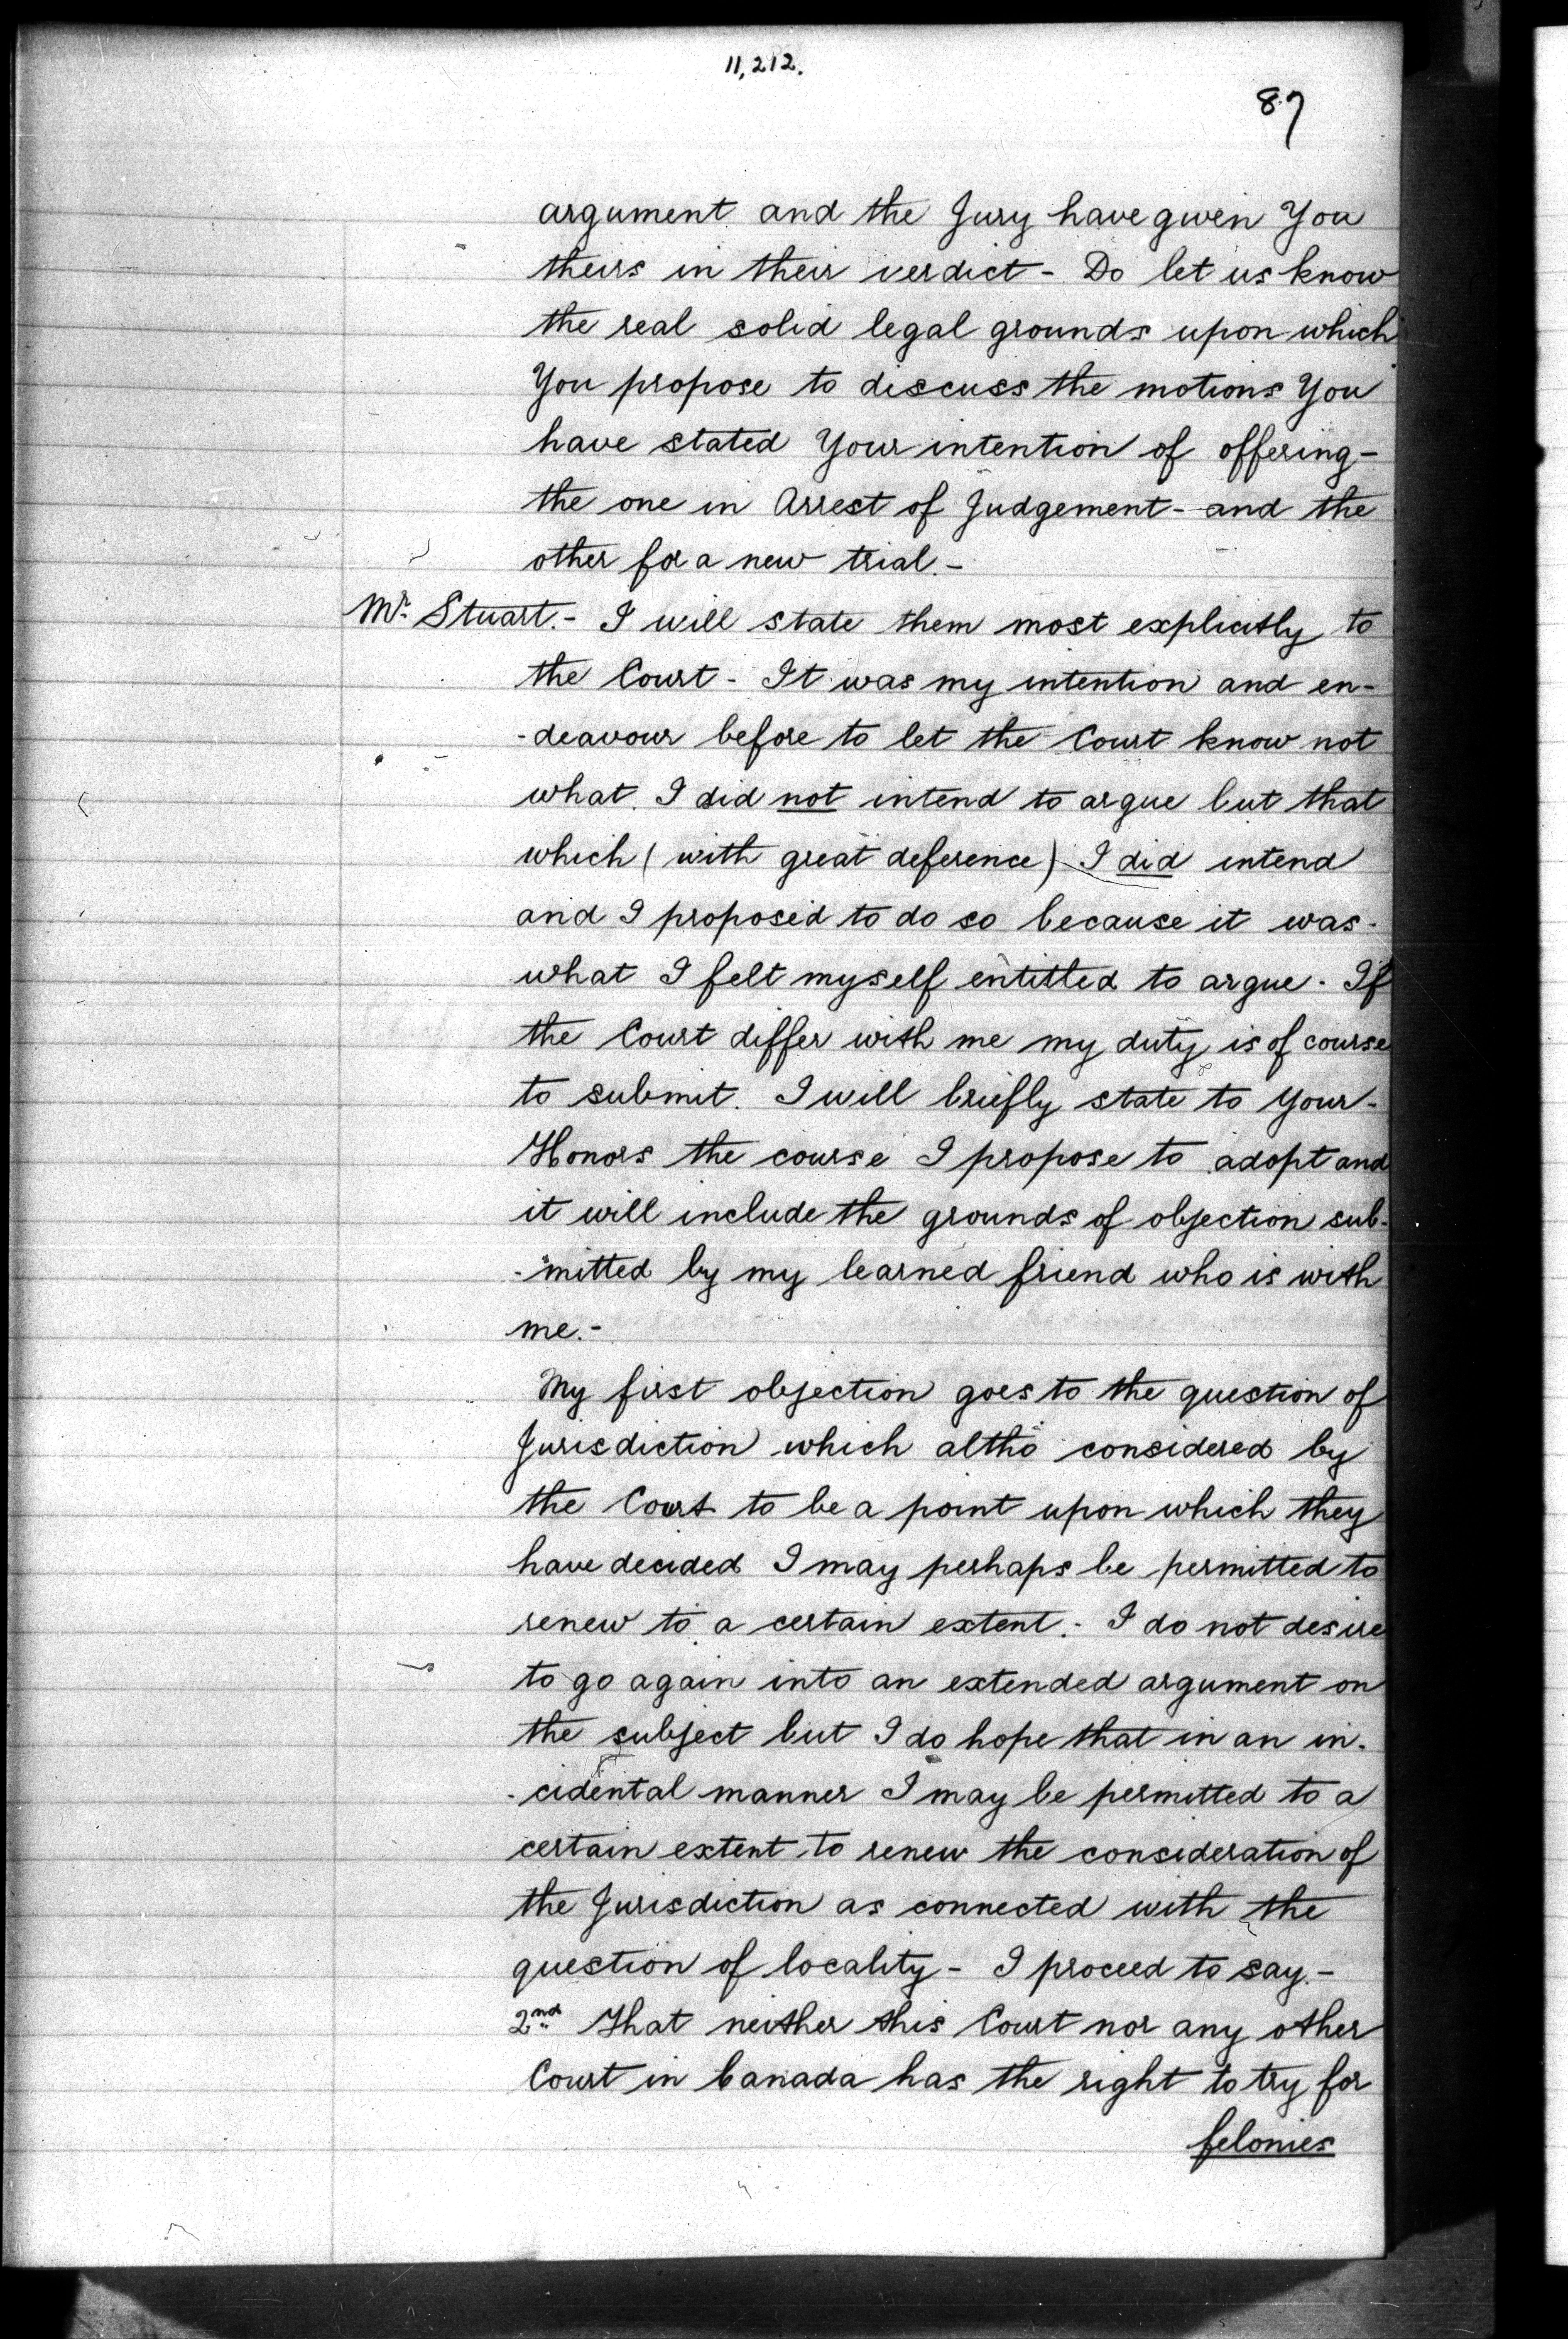 11,212.
87
argument and the Jury have given You
theirs in their verdict - Do let us know
the real solid legal grounds upon which
You propose to discuss the motions You
have stated Your intention of offering -
the one in Arrest of Judgement - and the
other for a new trial. -
Mr. Stuart. - I will state them most explicitly to
the Court - It was my intention and en-
-deavour before to let the Court know not
what I did not intend to argue but that
which ( with great deference ) I did intend
and I proposed to do so because it was -
what I felt myself entitled to argue. If
the Court differ with me my duty is of course
to submit. I will briefly state to Your -
Honors the course I propose to adopt and
it will include the grounds of objection sub-
-mitted by my learned friend who is with
me. -
My first objection goes to the question of
Jurisdiction which altho considered by
the Court to be a point upon which they
have decided I may perhaps be permitted to
renew to a certain extent. - I do not desire
to go again into an extended argument on
the subject but I do hope that in an in-
-cidental manner I may be permitted to a
certain extent to renew the consideration of
the Jurisdiction as connected with the
question of locality - I proceed to say. -
2nd That neither this Court nor any other
Court in Canada has the right to try for
felonies